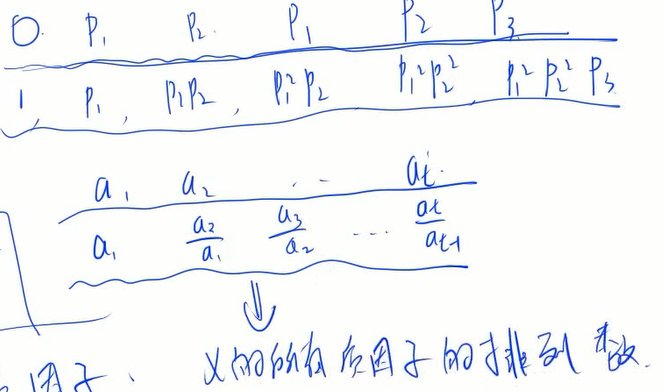 0. P₁ P₂ P₁ P₂ P₃
1, P₁, P₁P₂, P₁²P₂ P₁²P₂² P₁²P₂²P₃
a₁ a₂ ... aₜ
a₁ a₂/a₁ a₃/a₂ ... aₜ/aₜ₋₁
⇓
因子、 X的所有质因子的排列数.